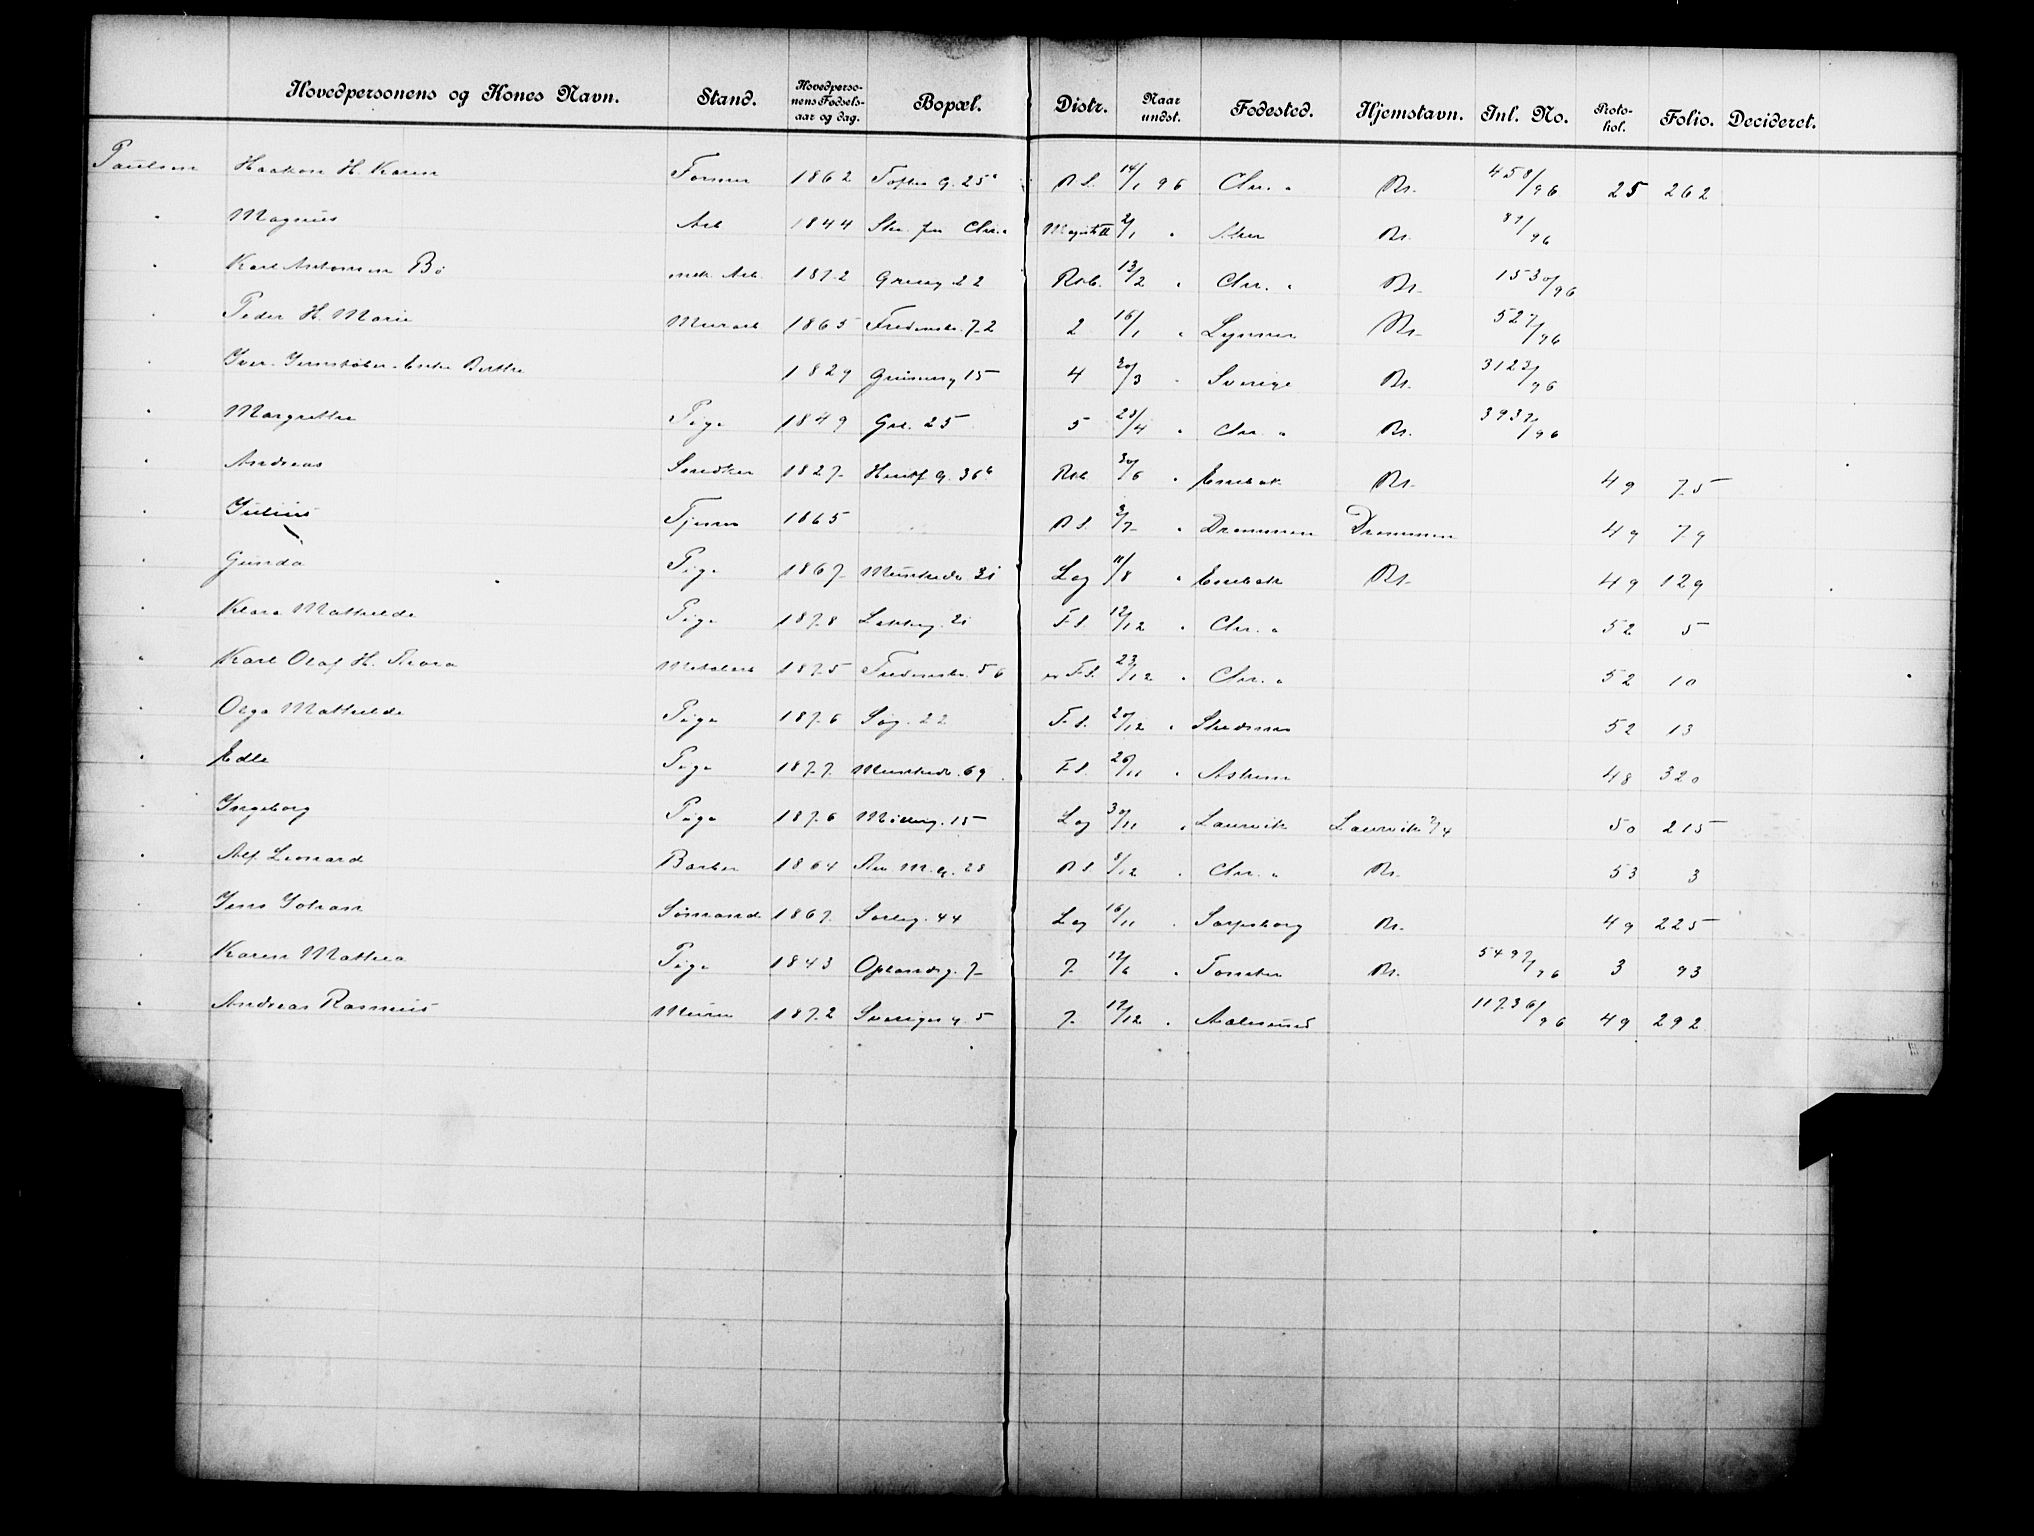 Hovedpersonens og Kones Navn. Stand. Hovedpersonens Fødselsaar og dag. Bopæl. Distr. Naar undst. Fødested. Hjemstavn. Inl. No. Protokol. Folio. Decideret.
Paulsen Haakon H. Karen Former 1862 Toftes G. 25 14/1 96 Chr. a 458/96 25 262
" Magnus Arb 1844 Chr. a 2/1 " Aker 81/96
" Karl Antonsen Bö mek. Arb. 1872 22 Rob. 13/2 " Chr. a 1530/96
" Peder H. Marie Murarb 1865 Fredensb. 72 2 16/1 " 527/96
" Iver Enke Berthe 1829 15 4 30/3 " Sverige 3123/96
" Margrethe Pige 1849 Grl. 25 5 28/4 " Chr. a 3937/96
" Andreas Snedker 1827 36 b Rob. 30/6 " Enebak 49 75
" Julius Tjener 1865 3/7 " Drammen Drammen 49 79
" Gunda Pige 1867 Munkeda 31 Lag 11/8 " Enebak 49 129
" Klara Mathilde Pige 1878 Lakkeg. 21 F.S. 12/12 " Chr. a 52 5
" Karl Olaf H. Thora Metalarb 1875 Fredensb. 56 F.S. 23/12 " Chr. a 52 10
" Olga Mathilde Pige 1876 22 F.S. 20/12 " Skedsmo 52 13
" Edle Pige 1877 Munkeda. 69 F.S. 26/11 " Askim 48 320
" Ingeborg Pige 1876 Mölleg. 15 Lag 30/11 " Laurvik Laurvik 2/4 50 215
" Alf Leonard Barber 1864 28 8/12 " Chr. a 53 3
" Jens Johan Sömand 1867 Sorlig. 44 Lag 16/11 " Sarpsborg 49 225
" Karen Mathea Pige 1843 Oplandsg. 7 7 12/6 " Tomter 5497/96 3 93
" Andreas Rasmus Murer 1872 Sveriges g. 5 7 17/12 " Aalesund 11736/96 49 292